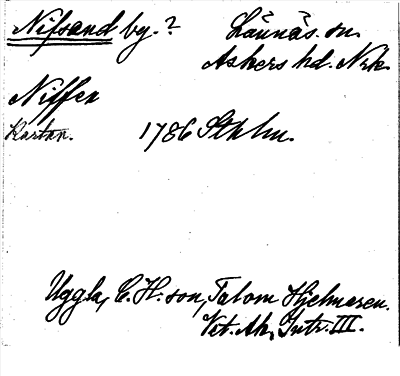 Nifsand by.? Lännäs. sn.
Askers hd. Nrk.
Niffer
Kartan. 1786 Sthlm.
Uggla, C. H:son, Tal om Hjelmaren.
Vet. Ak. Intr. III.